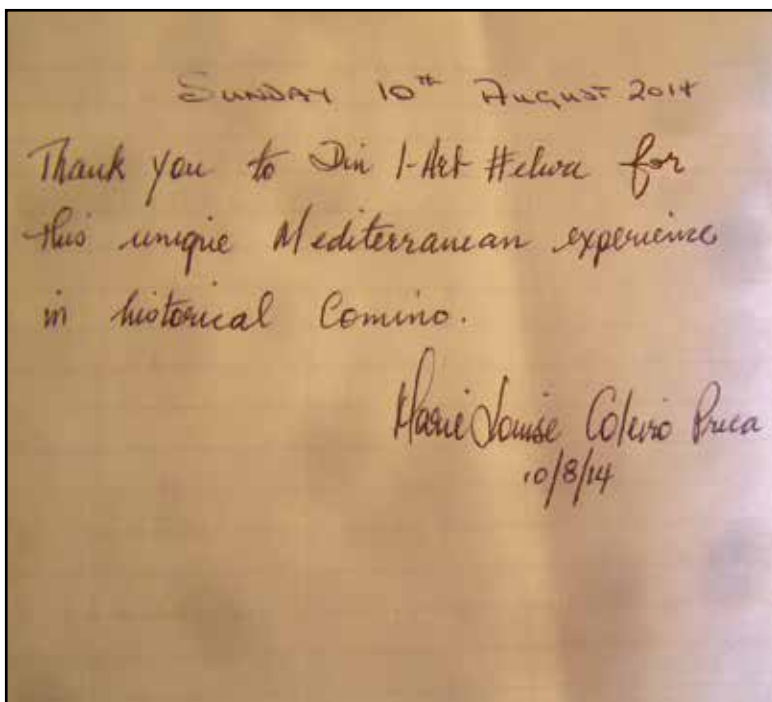 SUNDAY 10th AUGUST 2014
Thank you to Din l-Art Ħelwa for
this unique Mediterranean experience
in historical Comino.
Marie Louise Coleiro Preca
10/8/14